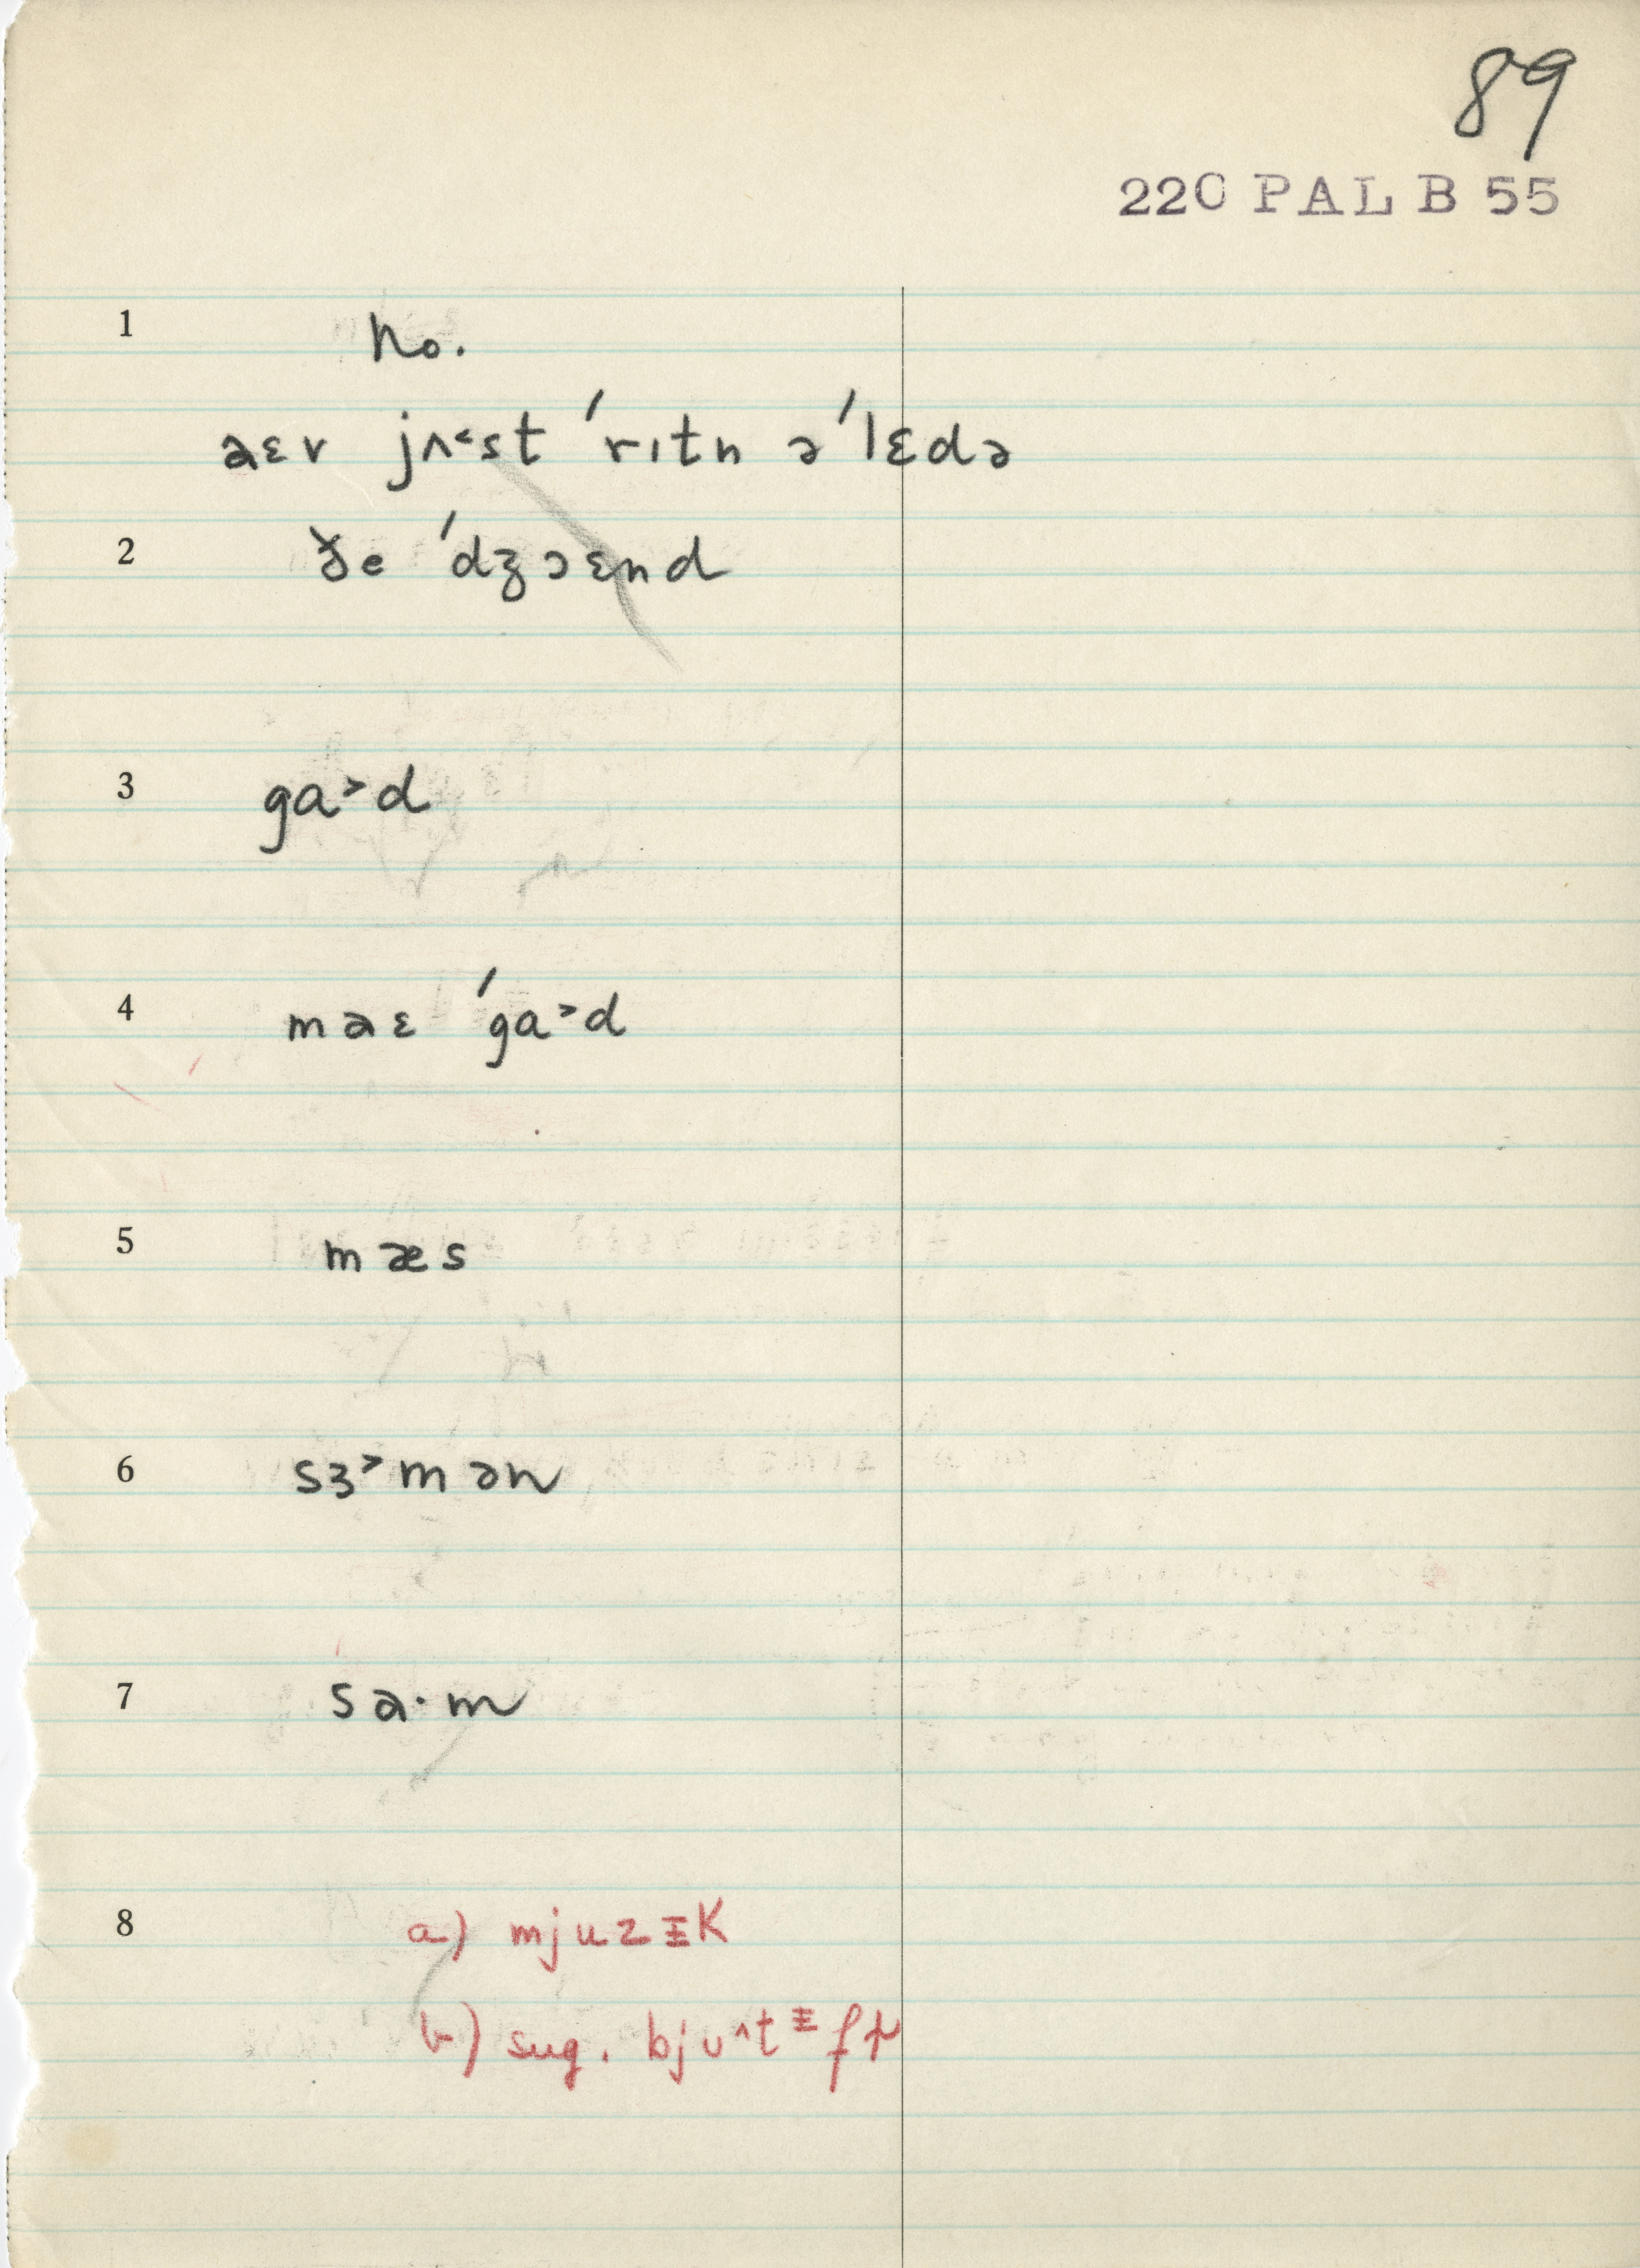 89
220 PAL B 55
1 No.
aɛv jʌ˂st ˈrɪtn əˈlɛdə
2 ðe ˈdʒɔɛnd
3 ga˃d
4 maɛ ˈga˃d
5 mæs
6 sɜ˃mən
7 sa·m
8 a) mjuzɪK
b) sug.